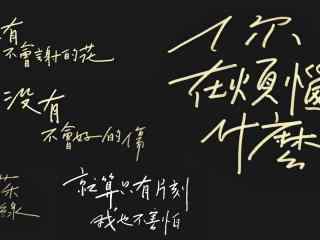 你
在煩惱
什麼
有
不會謝的花
沒有
不會好的傷
茶
線
就算只有片刻
我也不害怕